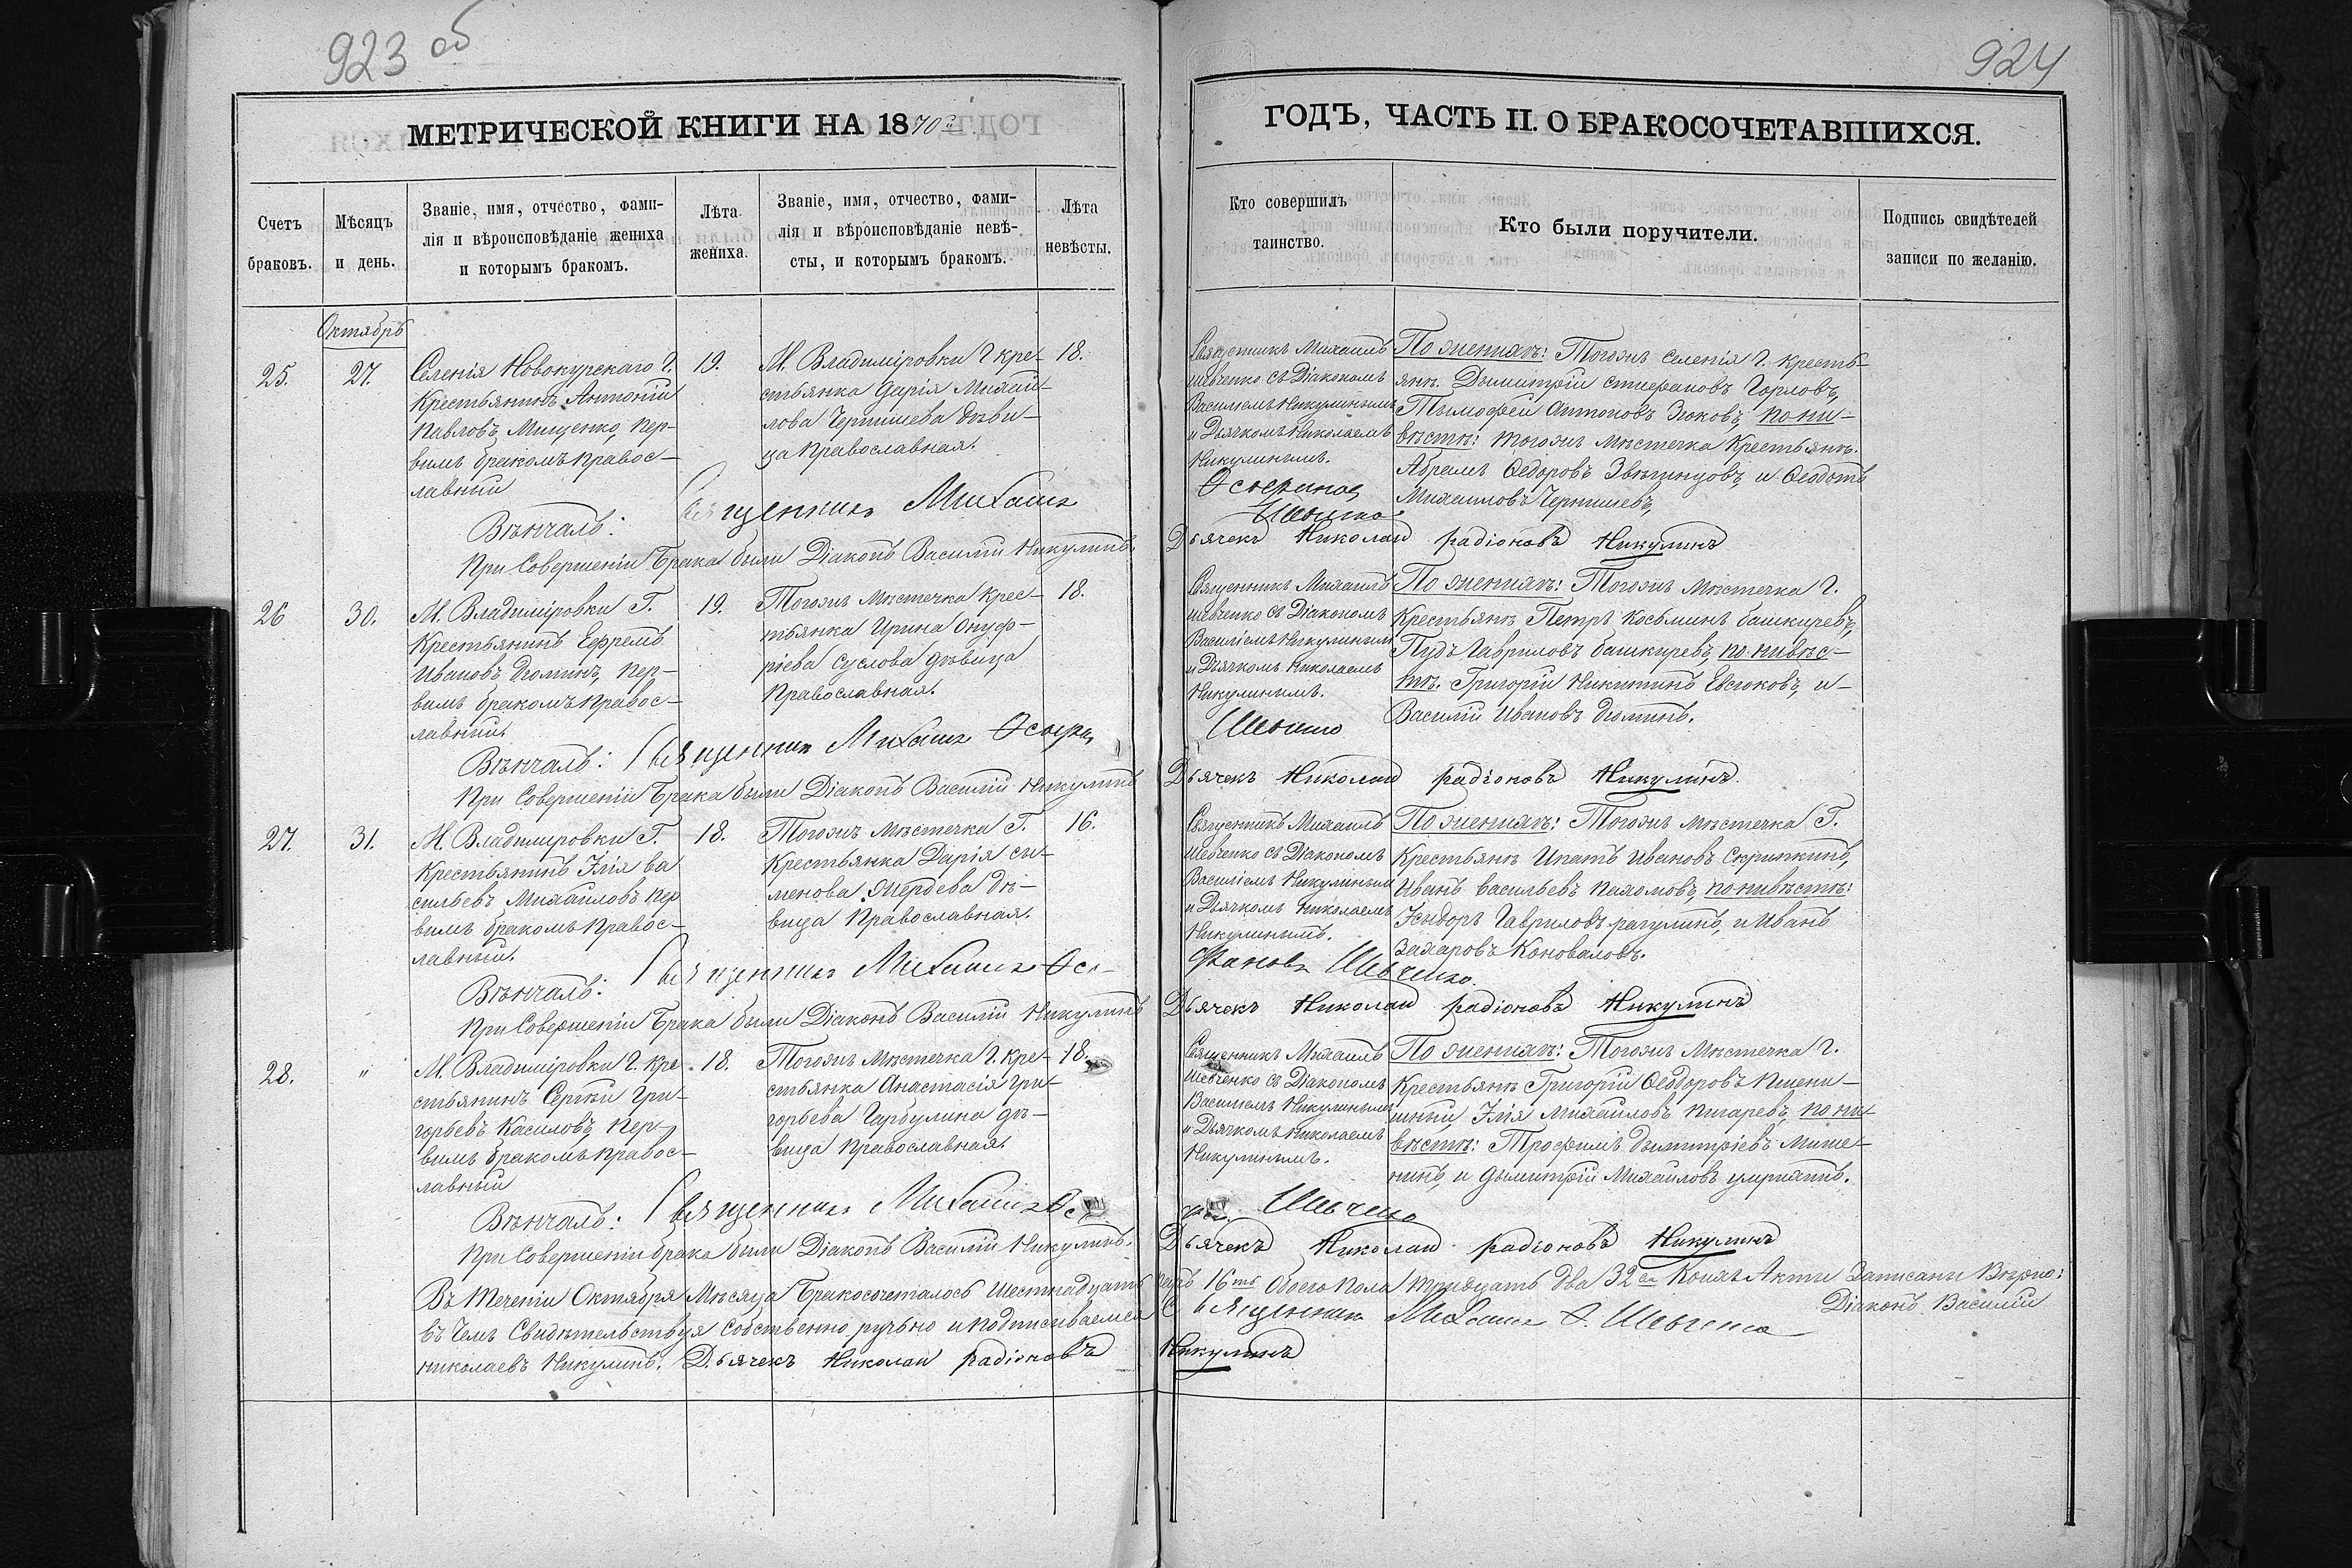 923 об
924
МЕТРИЧЕСКОЙ КНИГИ НА 1870й
ГОДЪ, ЧАСТЬ II. О БРАКОСОЧЕТАВШИХСЯ.
Счетъ
браковъ.
Мѣсяцъ
и день.
Званіе, имя, отчество, фами-
лія и вѣроисповѣданіе жениха
и которымъ бракомъ.
Лѣта
жениха.
Званіе, имя, отчество, фами-
лія и вѣроисповѣданіе невѣ-
сты, и которымъ бракомъ.
Лѣта
невѣсты.
Кто совершилъ
таинство.
Кто были поручители.
Подпись свидѣтелей
записи по желанію.
Октябрь
25.
27.
Селенія Новокурскаго Г.
Крестьянинъ Антоній
Павловъ Мищенко, пер-
вимъ бракомъ правос-
лавный
19.
М. Владиміровки Г кре-
стьянка Дарія Михаи-
лова Чернишева дѣви-
ца Православная.
18.
Священникъ Михаилъ
Шевченко съ Діакономъ
Василіемъ Никулинымъ
и Дьячкомъ Николаемъ
Никулинымъ.
По женихѣ: Тогожъ селенія Г. кресть-
янѣ. Дымитрій Стефановъ Горловъ,
Тымофей Антоновъ Зюковъ, по ни-
вѣстѣ: тогожъ мѣстечка Крестьянѣ.
Абрамъ Ѳедоровъ Звѣгинцовъ, и Ѳеодотъ
Михаиловъ Чернишевъ,
Вѣнчалъ: Священникъ Михаилъ Осефановъ
Шевченко
При Совершеніи Брака были Діаконъ Василій Никулинъ.
Дьячекъ Николай Радіоновъ Никулинъ
26
30.
М. Владиміровки Г.
Крестьянинъ Ефремъ
Ивановъ Дюминъ, пер-
вимъ бракомъ правос-
лавный.
19.
Тогожъ мѣстечка Крес-
тьянка Ирина Онуф-
ріева Суслова дѣвица
Православная.
18.
Священникъ Михаилъ
Шевченко съ Діакономъ
Василіемъ Никулинымъ
и Дьячкомъ Николаемъ
Никулинымъ.
По женихѣ: Тогожъ мѣстечка Г.
Крестьянѣ Петръ Косьминъ Башкиревъ,
Пудъ Гавриловъ Башкиревъ, по нивѣс-
тѣ. Григорій Никитинъ Евсюковъ, и
Василій Ивановъ Дюминъ.
Вѣнчалъ: Священникъ Михаилъ
Шевченко
При Совершеніи Брака были Діаконъ Василій Никулинъ
Дьячекъ Николай Радіоновъ Никулинъ.
27.
31.
М. Владиміровки Г.
Крестьянинъ Ілія Ва
сильевъ Михаиловъ пер
вимъ бракомъ правос-
лавный.
18.
Тогожъ мѣстечка Г.
Крестьянка Дарія Си-
менова Жердева дѣ-
вица Православная.
16.
Священникъ Михаилъ
Шевченко съ Діакономъ
Василіемъ Никулинымъ
и Дьячкомъ Николаемъ
Никулинымъ.
По женихѣ: Тогожъ мѣстечка Г.
Крестьянѣ Ипатъ Ивановъ Скрипкинъ,
Иванъ Васильевъ Пахомовъ, по нивѣстѣ:
Ісидоръ Гавриловъ Рагулинъ, и Иванъ
Захаровъ Коноваловъ.
Вѣнчалъ: Священникъ Михаилъ Осе-
фановъ Шевченко.
При Совершеніи Брака были Діаконъ Василій Никулинъ
Дьячекъ Николай Радіоновъ Никулинъ
28.
"
М. Владиміровки Г. кре
стьянинъ Сергій Гри-
горьевъ Касиловъ, пер-
вимъ бракомъ правос-
лавный
18.
Тогожъ мѣстечка Г. кре-
стьянка Анастасія Гри-
горьева Гарбулина дѣ-
вица Православная.
18.
Священникъ Михаилъ
Шевченко съ Діакономъ
Василіемъ Никулинымъ
и Дьячкомъ Николаемъ
Никулинымъ.
По женихѣ: Тогожъ мѣстечка Г.
Крестьянѣ Григорій Ѳеодоровъ Пшени-
шный, Ілія Михаиловъ Пигаревъ, по ни-
вѣстѣ: Трофимъ Дымитріевъ Мише-
нинъ, и Дымитрій Михаиловъ
Вѣнчалъ: Священникъ Михаилъ
Шевченко
При Совершеніи брака были Діаконъ Василій Никулинъ.
Дьячекъ Николай Радіоновъ Никулинъ
Въ теченіи Октября Мѣсяца Бракосочеталось Шестнадцать паръ 16ть обоего пола тридцать два 32 Акты Записаны Вѣрно:
въ чемъ Свидѣтельствуя собственно ручьно и подписиваемся Священникъ Михаилъ О. Шевченко Діаконъ Василій
Николаевъ Никулинъ. Дьячекъ Николай Радіоновъ Никулинъ